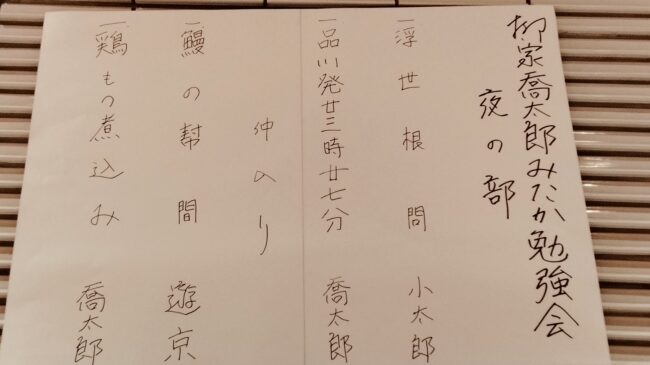 柳家喬太郎みたか勉強会
夜の部
一浮世根問 小太郎
一品川発廿三時廿七分 喬太郎
仲入り
一鰻の幇間 遊京
一鶏もつ煮込み 喬太郎